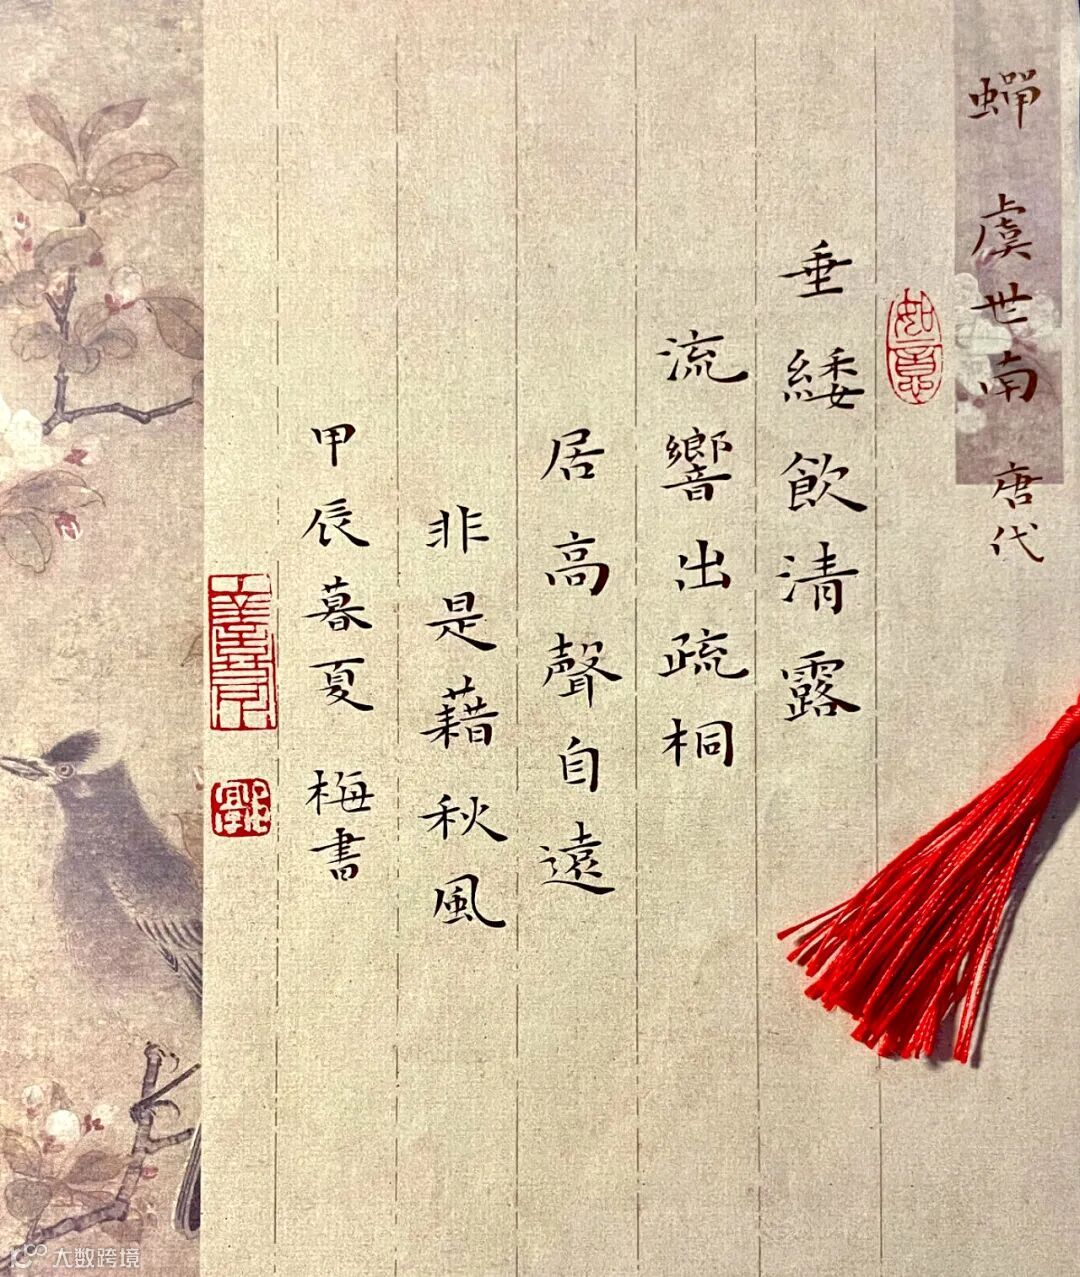 蟬 虞世南 唐代
如意
垂緌飲清露
流響出疏桐
居高聲自遠
非是藉秋風
甲辰暮夏 梅書
大数跨境